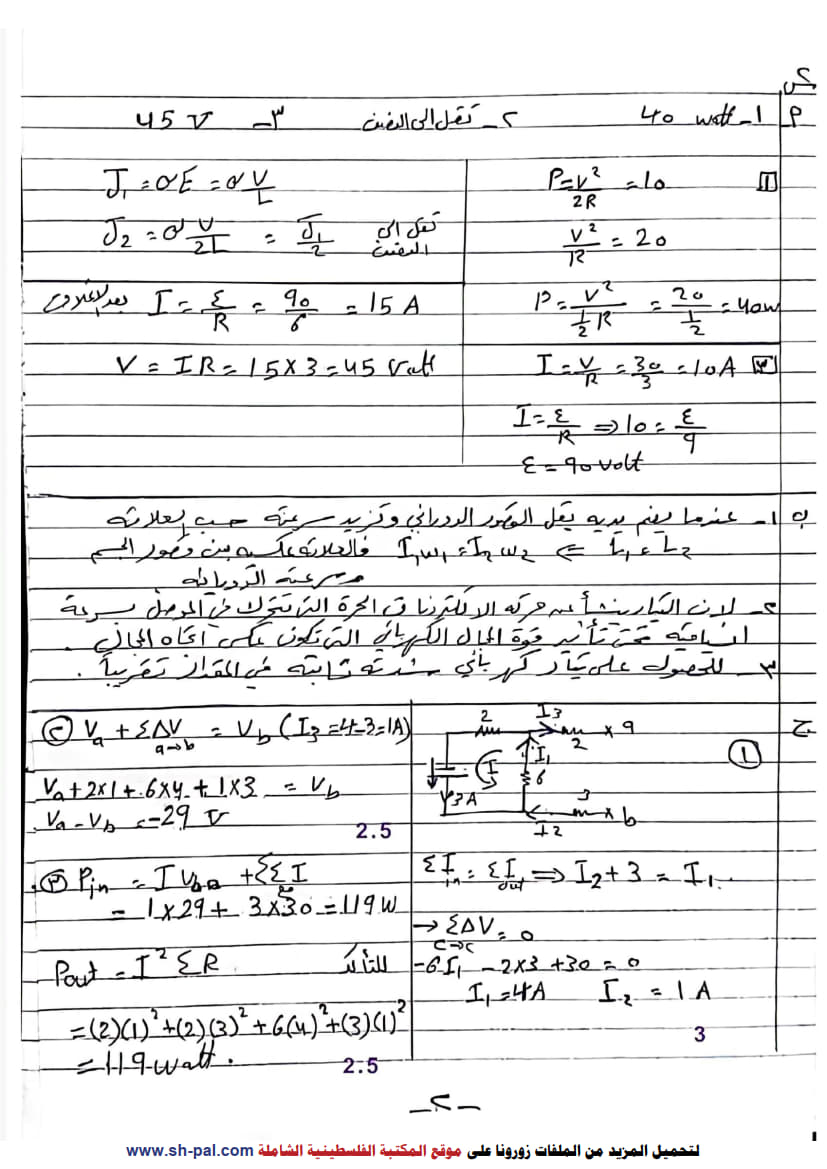 س٢
٩ ١- 40 watt ٢- تقل الى النصف ٣- 45 V
١ P = V² / 2R = 10
V² / R = 20
P = V² / ½R = 20 / ½ = 40w
٣ I = V/R = 30/3 = 10A
I = ε/R ⇒ 10 = ε/9
ε = 90 volt
J₁ = σE = σ V/L
J₂ = σ V/2L = J₁/2 تقل الى النصف
بعد الاغلاق I = ε/R = 90/6 = 15 A
V = IR = 15 × 3 = 45 Vatt
ب ١- عندما يضم يديه يقل القصور الدوراني وتزيد سرعته حسب العلاقة
I₁ω₁ = I₂ω₂ ⇐ L₁ = L₂ فالعلاقة عكسية بين قصور الجسم
وسرعته الدورانية
٢- لان التيار ينشأ عن حركة الالكترونات الحرة التي تتحرك في الموصل بسرعة
انسياقية تحت تأثير قوة المجال الكهربائي التي تكون عكس اتجاه المجال.
٣- للحصول على تيار كهربائي شدته ثابتة في المقدار تقريباً.
ج ①
2 I3 2 × a
I I1 6
3A I2 3 × b
ΣI in = ΣI out ⇒ I₂ + 3 = I₁
→ ΣΔV c→c = 0
-6I₁ - 2×3 + 30 = 0
I₁ = 4A I₂ = 1 A
3
② Va + ΣΔV a→b = Vb (I₃ = 4-3 = 1A)
Va + 2×1 + 6×4 + 1×3 = Vb
Va - Vb = -29 V
2.5
③ Pin = I Vba + ΣεI
= 1 × 29 + 3×30 = 119 W
Pout = I² ΣR للتأكد
= (2)(1)² + (2)(3)² + 6(4)² + (3)(1)²
= 119 watt.
2.5
-٢-
لتحميل المزيد من الملفات زورونا على موقع المكتبة الفلسطينية الشاملة www.sh-pal.com